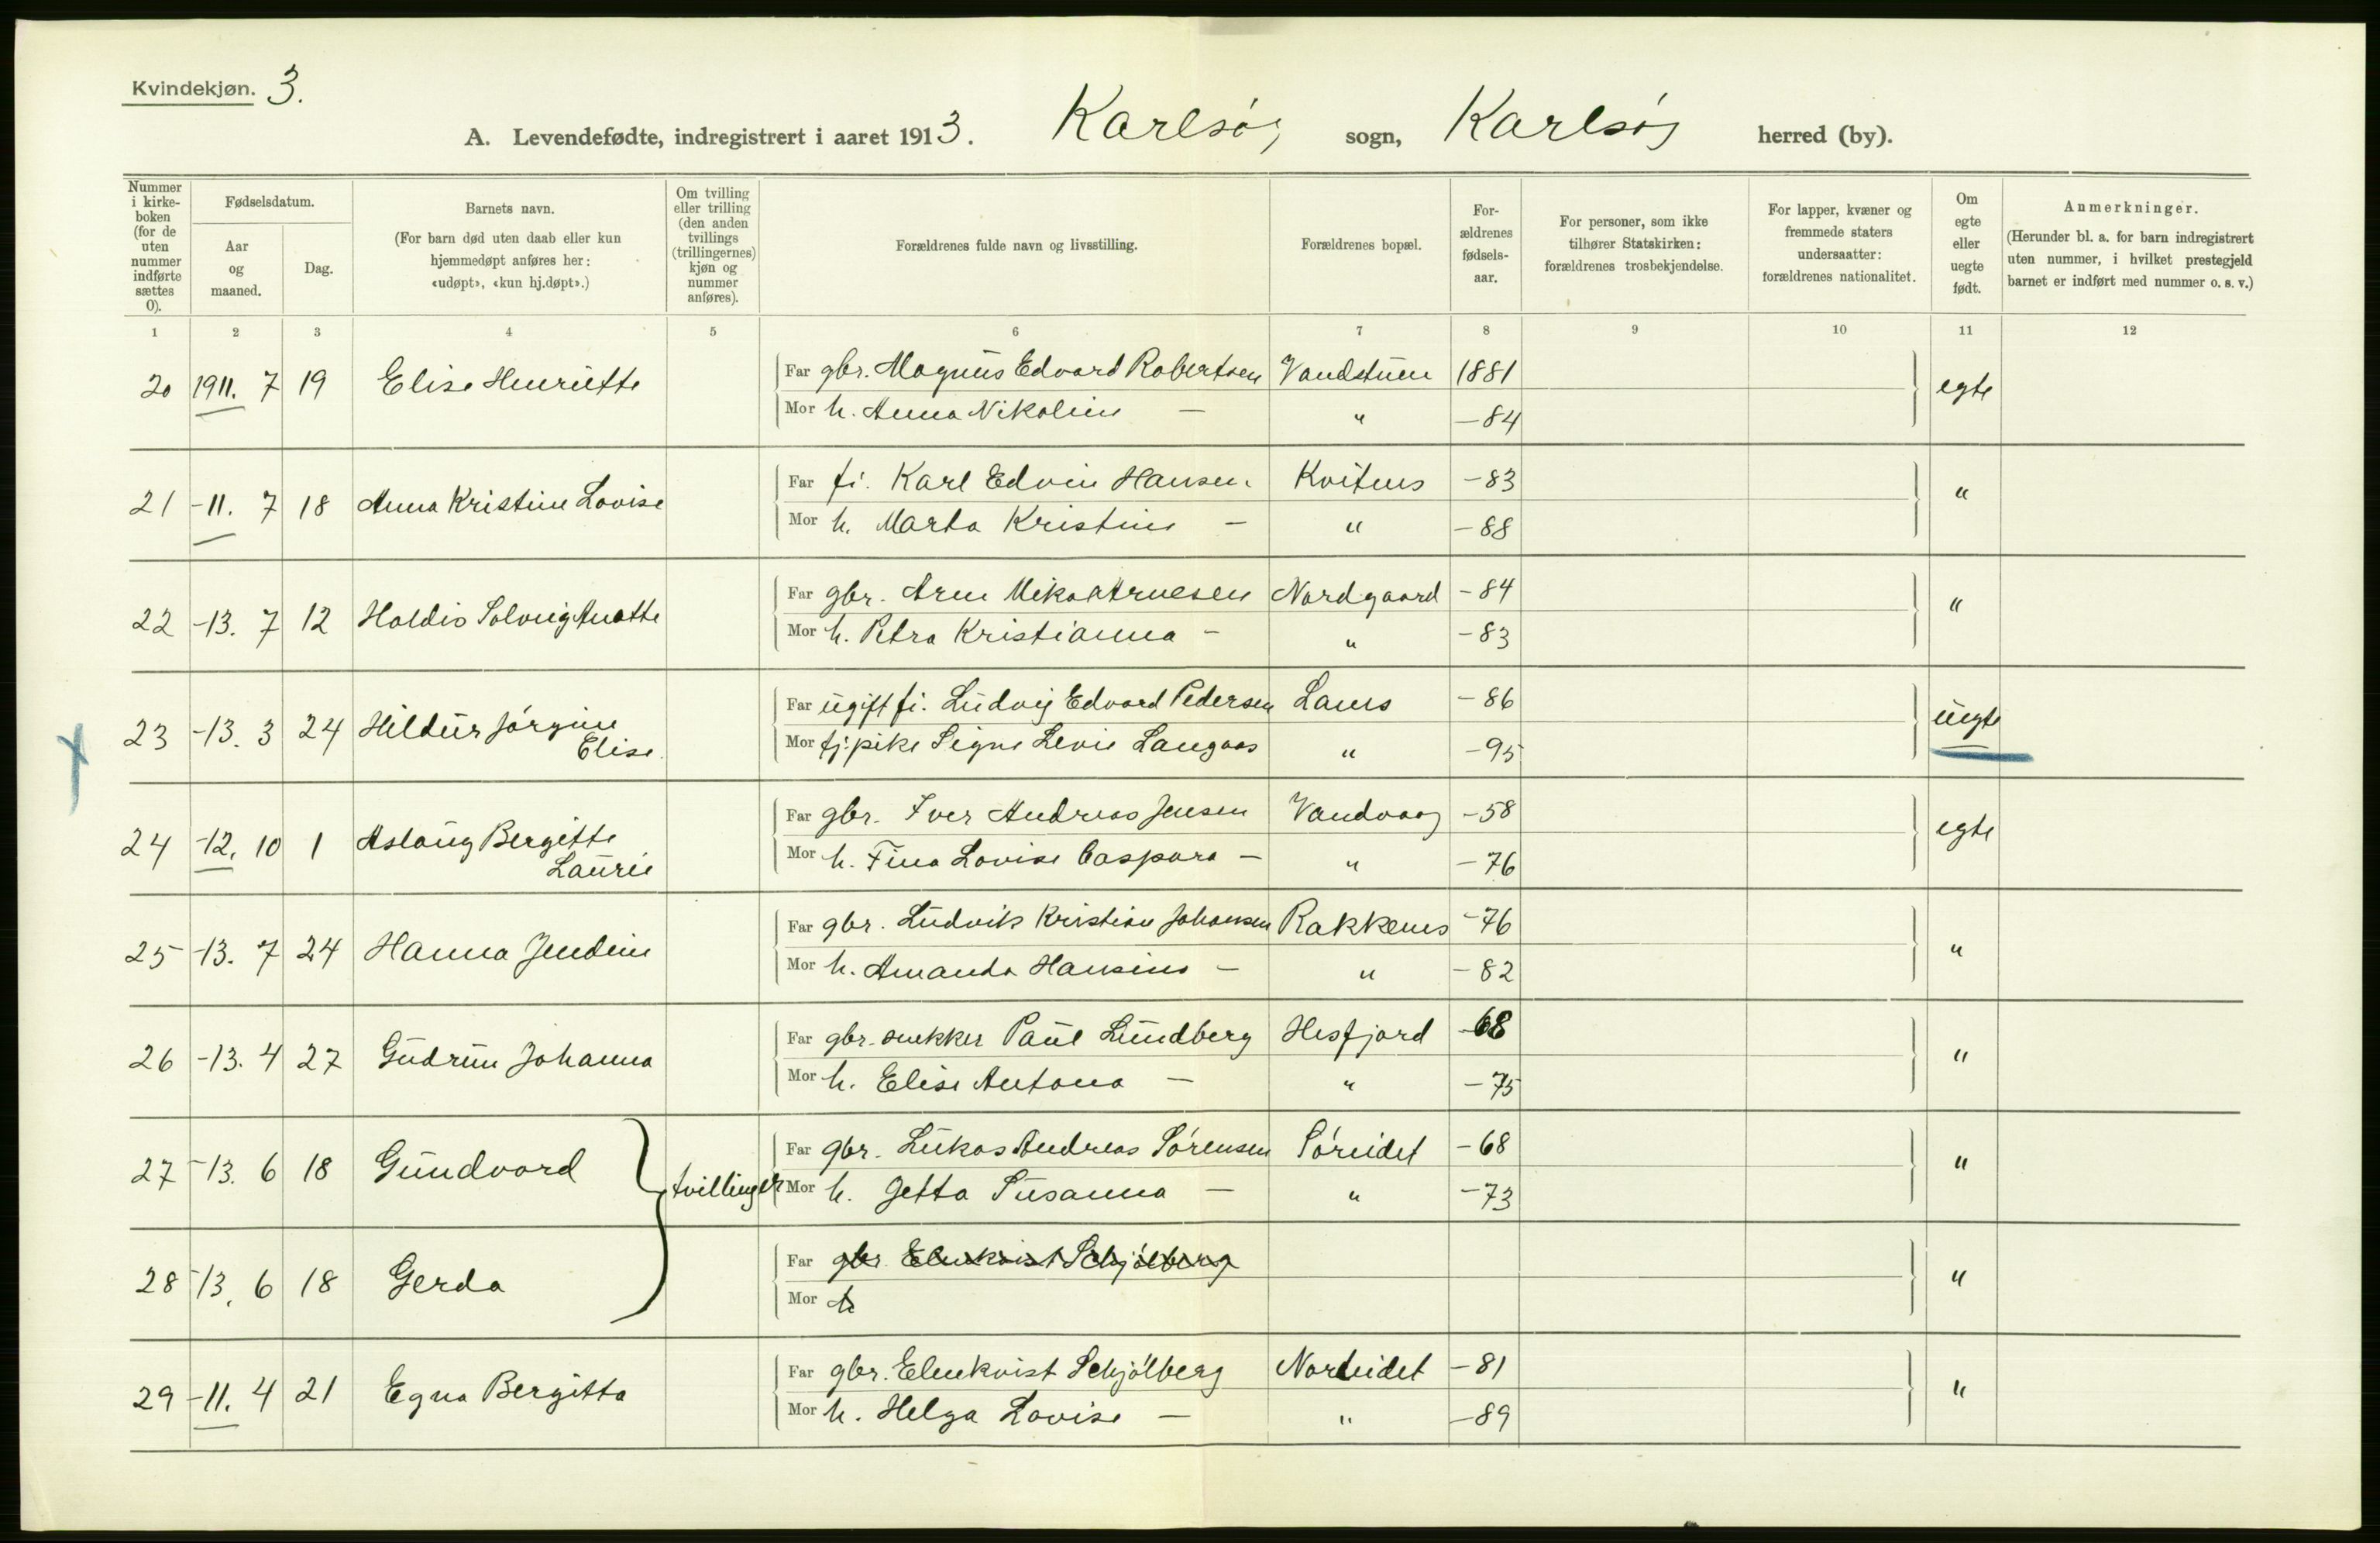 Kvindekjøn. 3.
A. Levendefødte, indregistrert i aaret 1913. Karlsøy sogn, Karlsøy herred (by).
Nummer i kirke-boken (for de uten nummer indførte sættes 0).
Fødselsdatum.
Aar og maaned.
Dag.
Barnets navn.
(For barn død uten daab eller kun hjemmedøpt anføres her: «udøpt», «kun hj.døpt».)
Om tvilling eller trilling (den anden tvillings (trillingernes) kjøn og nummer anføres).
Forældrenes fulde navn og livsstilling.
Forældrenes bopæl.
For-ældrenes fødsels-aar.
For personer, som ikke tilhører Statskirken: forældrenes trosbekjendelse.
For lapper, kvæner og fremmede staters undersaatter: forældrenes nationalitet.
Om egte eller uegte født.
Anmerkninger.
(Herunder bl. a. for barn indregistrert uten nummer, i hvilket prestegjeld barnet er indført med nummer o. s. v.)
1 2 3 4 5 6 7 8 9 10 11 12
20 1911. 7 19 Elise Henriette Far gbr. Magnus Edvard Robertsen Vandstuen 1881 egte
Mor h. Anna Nikoline — " —84
21 -11. 7 18 Anna Kristine Lovise Far fi. Karl Edvin Hansen Kvitnes -83 "
Mor h. Marta Kristine — " -88
22 -13. 7 12 Haldis Solveig Anette Far gbr. Arne Mikal Arnesen Nordgaard -84 "
Mor h. Petra Kristianna - " -83
23 -13. 3 24 Hildur Jørgine Elise Far ugift fi. Ludvig Edvard Pedersen Lanes -86 uegte
Mor tj.pike Signe Levie Langaas " -95
24 -12. 10 1 Aslaug Bergitte Laurie Far gbr. Iver Andreas Jensen Vandvaag -58 egte
Mor h. Fina Lovise Caspara — " -76
25 -13. 7 24 Hanna Jendine Far gbr. Ludvik Kristian Johansen Rakkenes -76 "
Mor h. Amanda Hansine - " -82
26 -13. 4 27 Gudrun Johanna Far gbr. snekker Paul Lundberg Hesfjord -68 "
Mor h. Elise Antona — " -75
27 -13. 6 18 Gundvord tvillinger Far gbr. Lukas Andreas Sørensen Søreidet -68 "
Mor h. Jetta Susanna — " -73
28 -13. 6 18 Gerda Far gbr. Elenkvist Schjølberg "
Mor h
29 -11. 4 21 Egna Bergitta Far gbr. Elenkvist Schjølberg Noreidet -81 "
Mor h. Helga Lovise — " -89